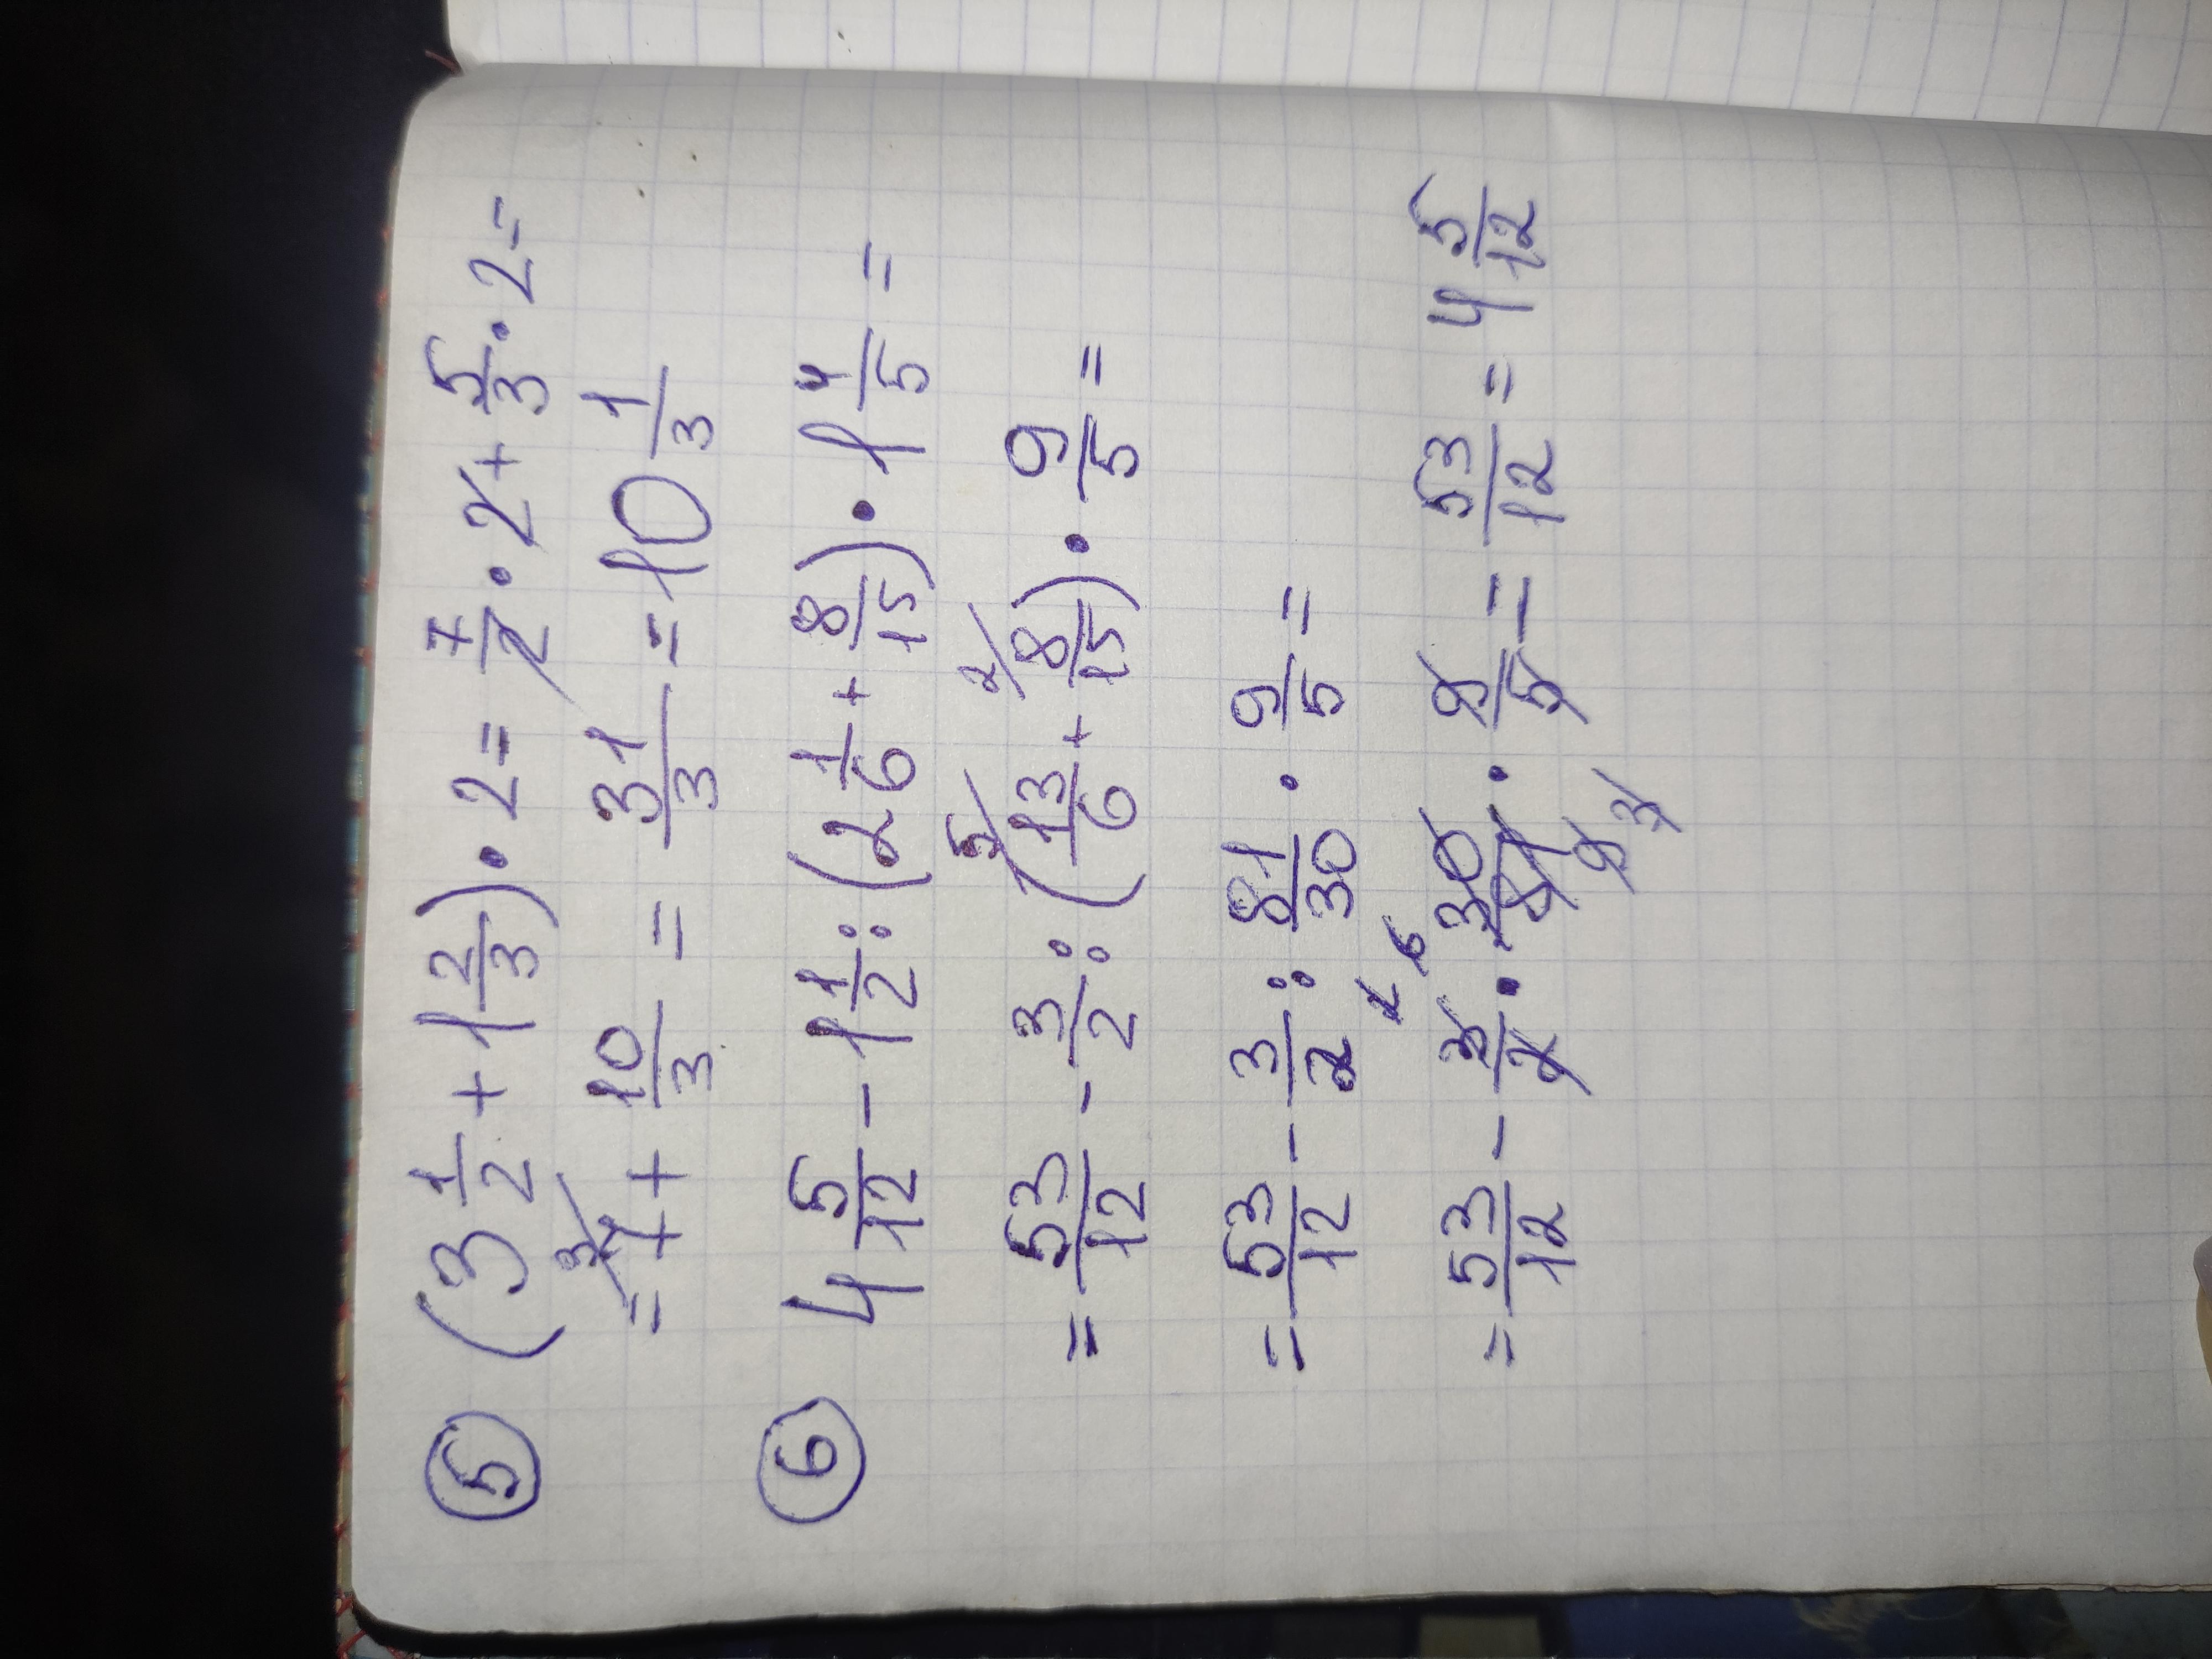 ⑤ (3 1/2 + 1 2/3) · 2 = 7/2 · 2 + 5/3 · 2 =
= 3/7 + 10/3 = 31/3 = 10 1/3
⑥ 4 5/12 - 1 1/2 : (2 1/6 + 8/15) · 1 4/5 =
= 53/12 - 3/2 : (5/ 13/6 + 2/ 8/15) · 9/5 =
= 53/12 - 3/2 : 81/30 · 9/5 =
= 53/12 - 3/2 · 30/81 · 9/5 = 53/12 = 4 5/12